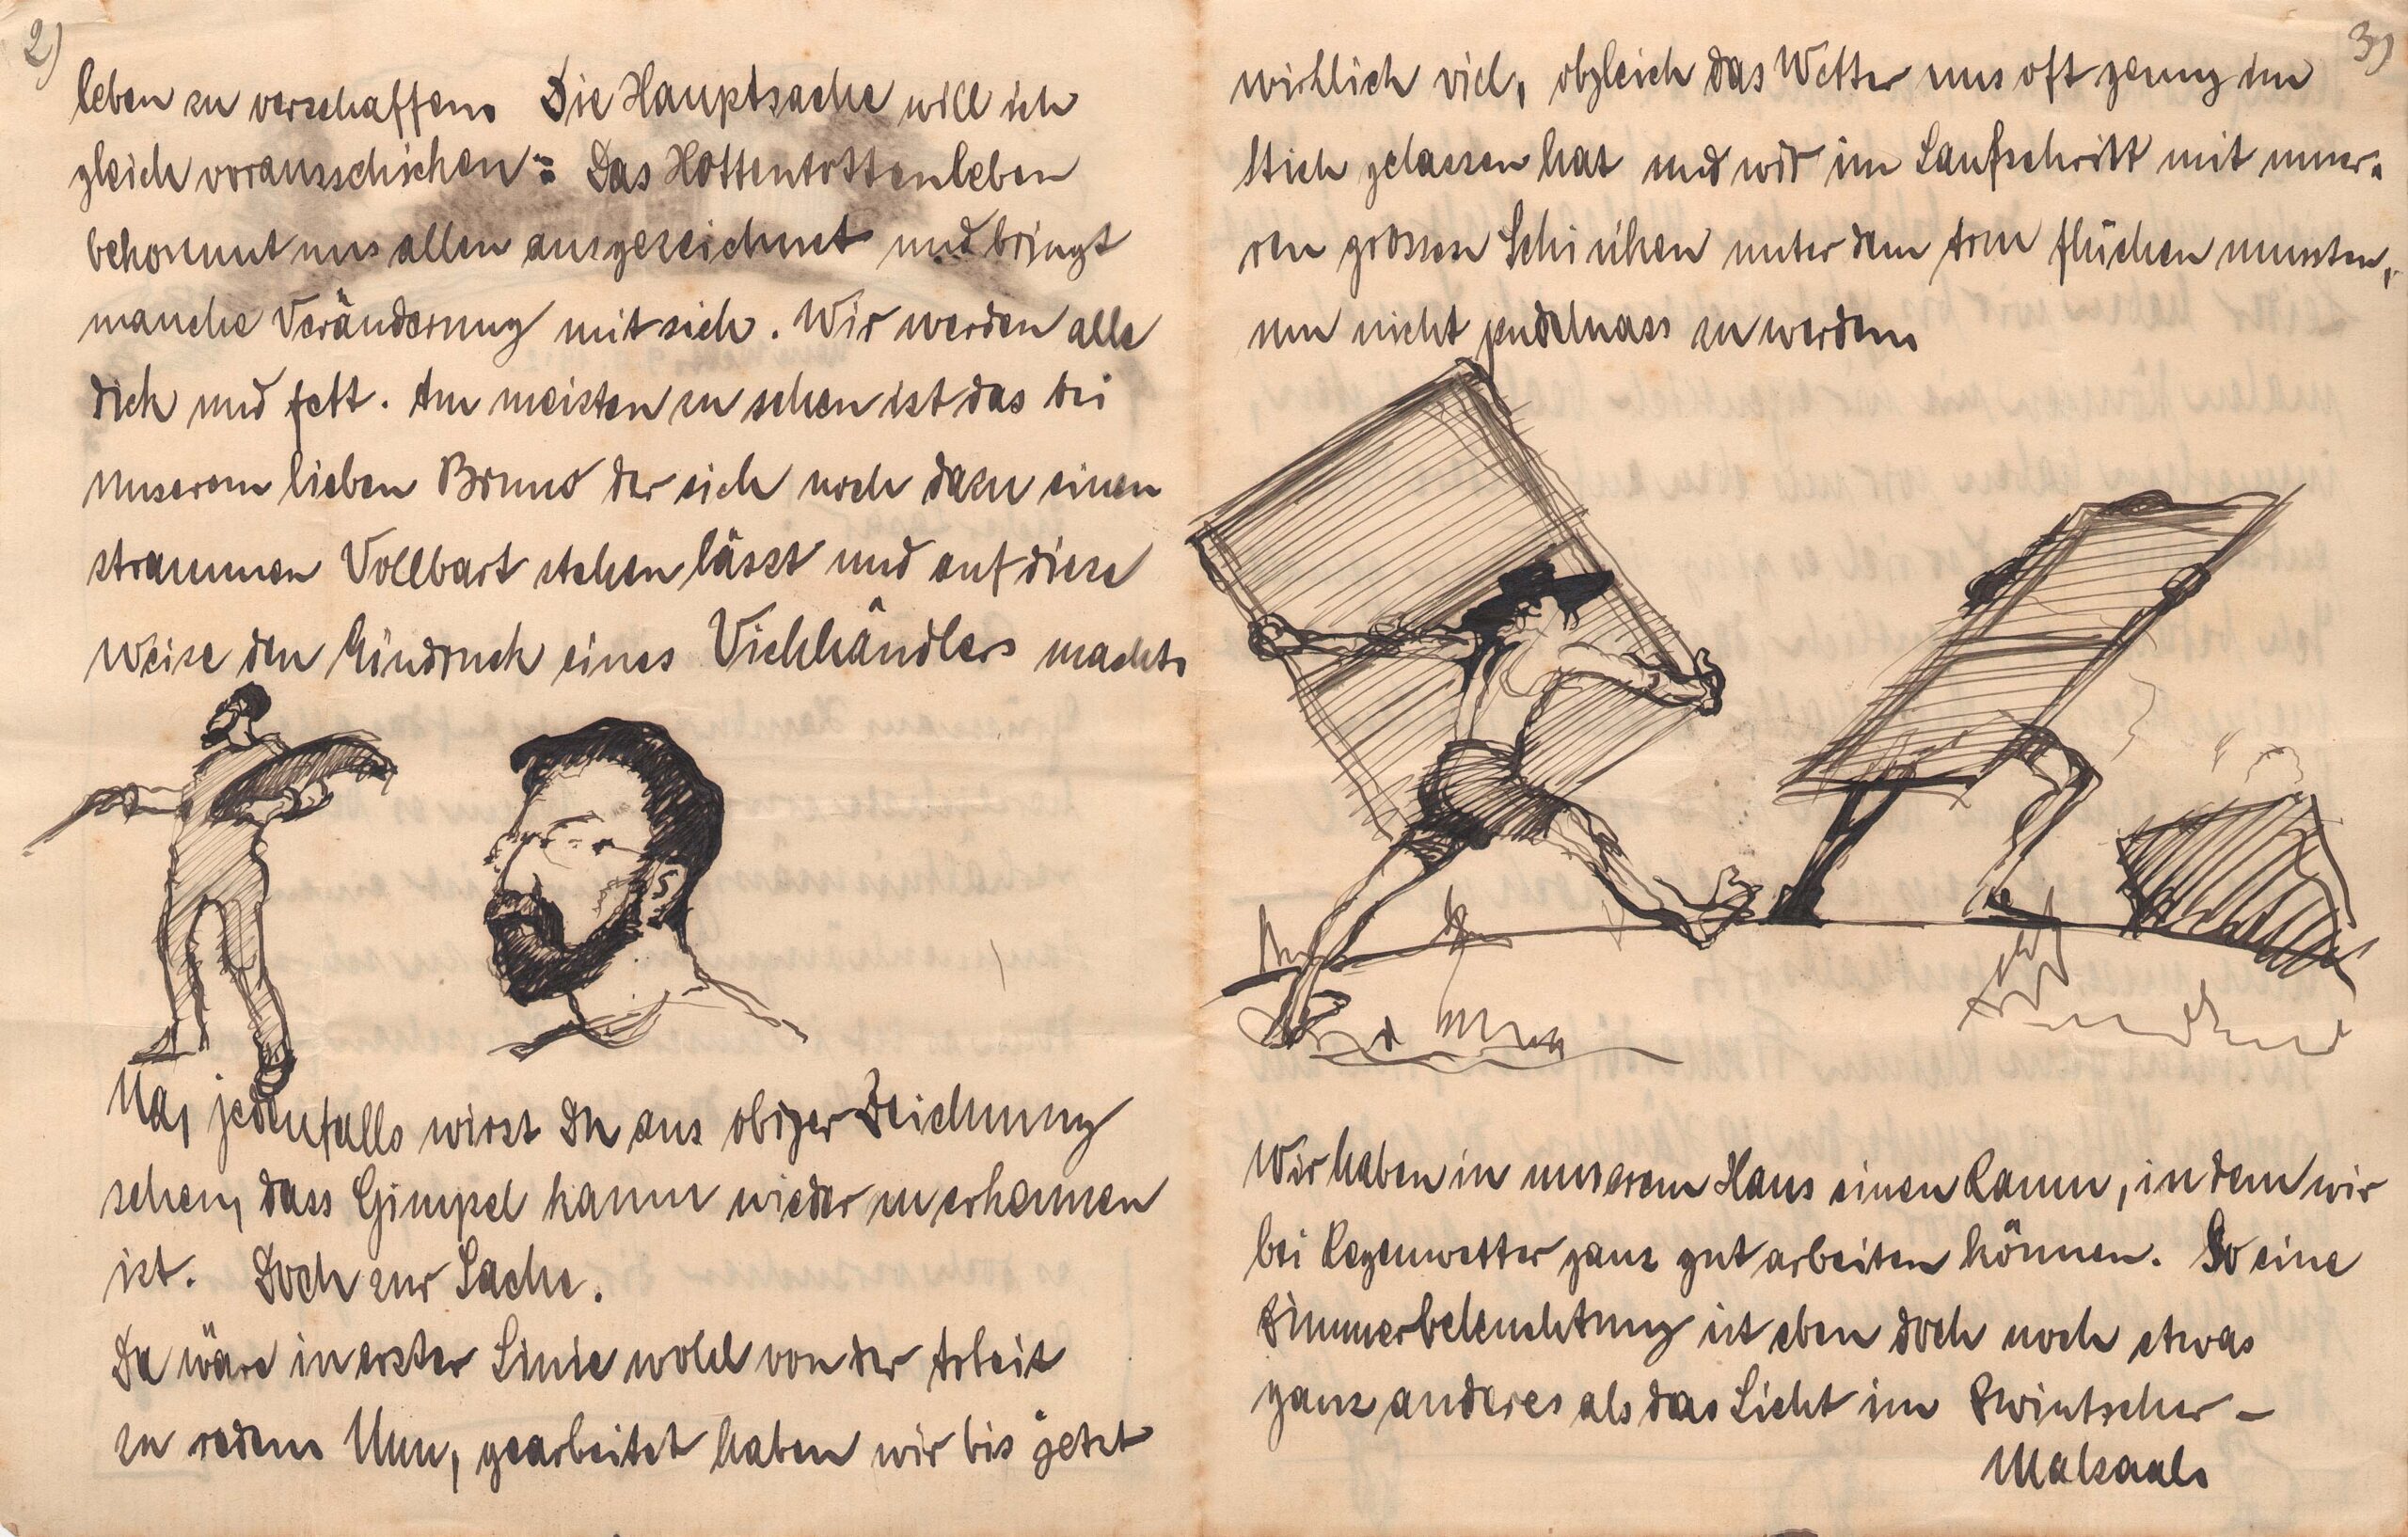 2)
leben zu verschaffen. Die Hauptsache will ich
gleich vorausschicken: Das Hottentottenleben
bekommt uns allen ausgezeichnet und bringt
manche Veränderung mit sich. Wir werden alle
dick und fett. Am meisten zu sehen ist das bei
unserem lieben Bruno der sich noch dazu einen
strammen Vollbart stehen lässt und auf diese
Weise den Eindruck eines Viehhändlers macht.
Na, jedenfalls wirst Du aus obiger Zeichnung
sehen, dass Gimpel kaum wieder zu erkennen
ist. Doch zur Sache.
Da wäre in erster Linie wohl von der Arbeit
zu reden. Nun, gearbeitet haben wir bis jetzt
3)
wirklich viel, obgleich das Wetter uns oft genug im
Stich gelassen hat und wir im Laufschritt mit unse-
ren grossen Schinken unter dem Arm flüchen mussten,
um nicht pudelnass zu werden.
Wir haben in unserem Haus einen Raum, in dem wir
bei Regenwetter ganz gut arbeiten können. So eine
Zimmerbeleuchtung ist eben doch noch etwas
ganz anderes als das Licht im Zwintscher-
Malsaal.